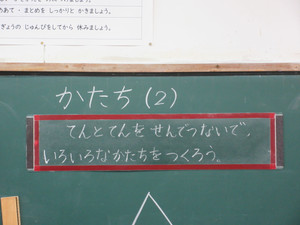 めあて・まとめを しっかりと かきましょう。
ぎょうの じゅんびをしてから 休みましょう。
かたち(2)
てんとてんを せんでつないで、
いろいろなかたちをつくろう。